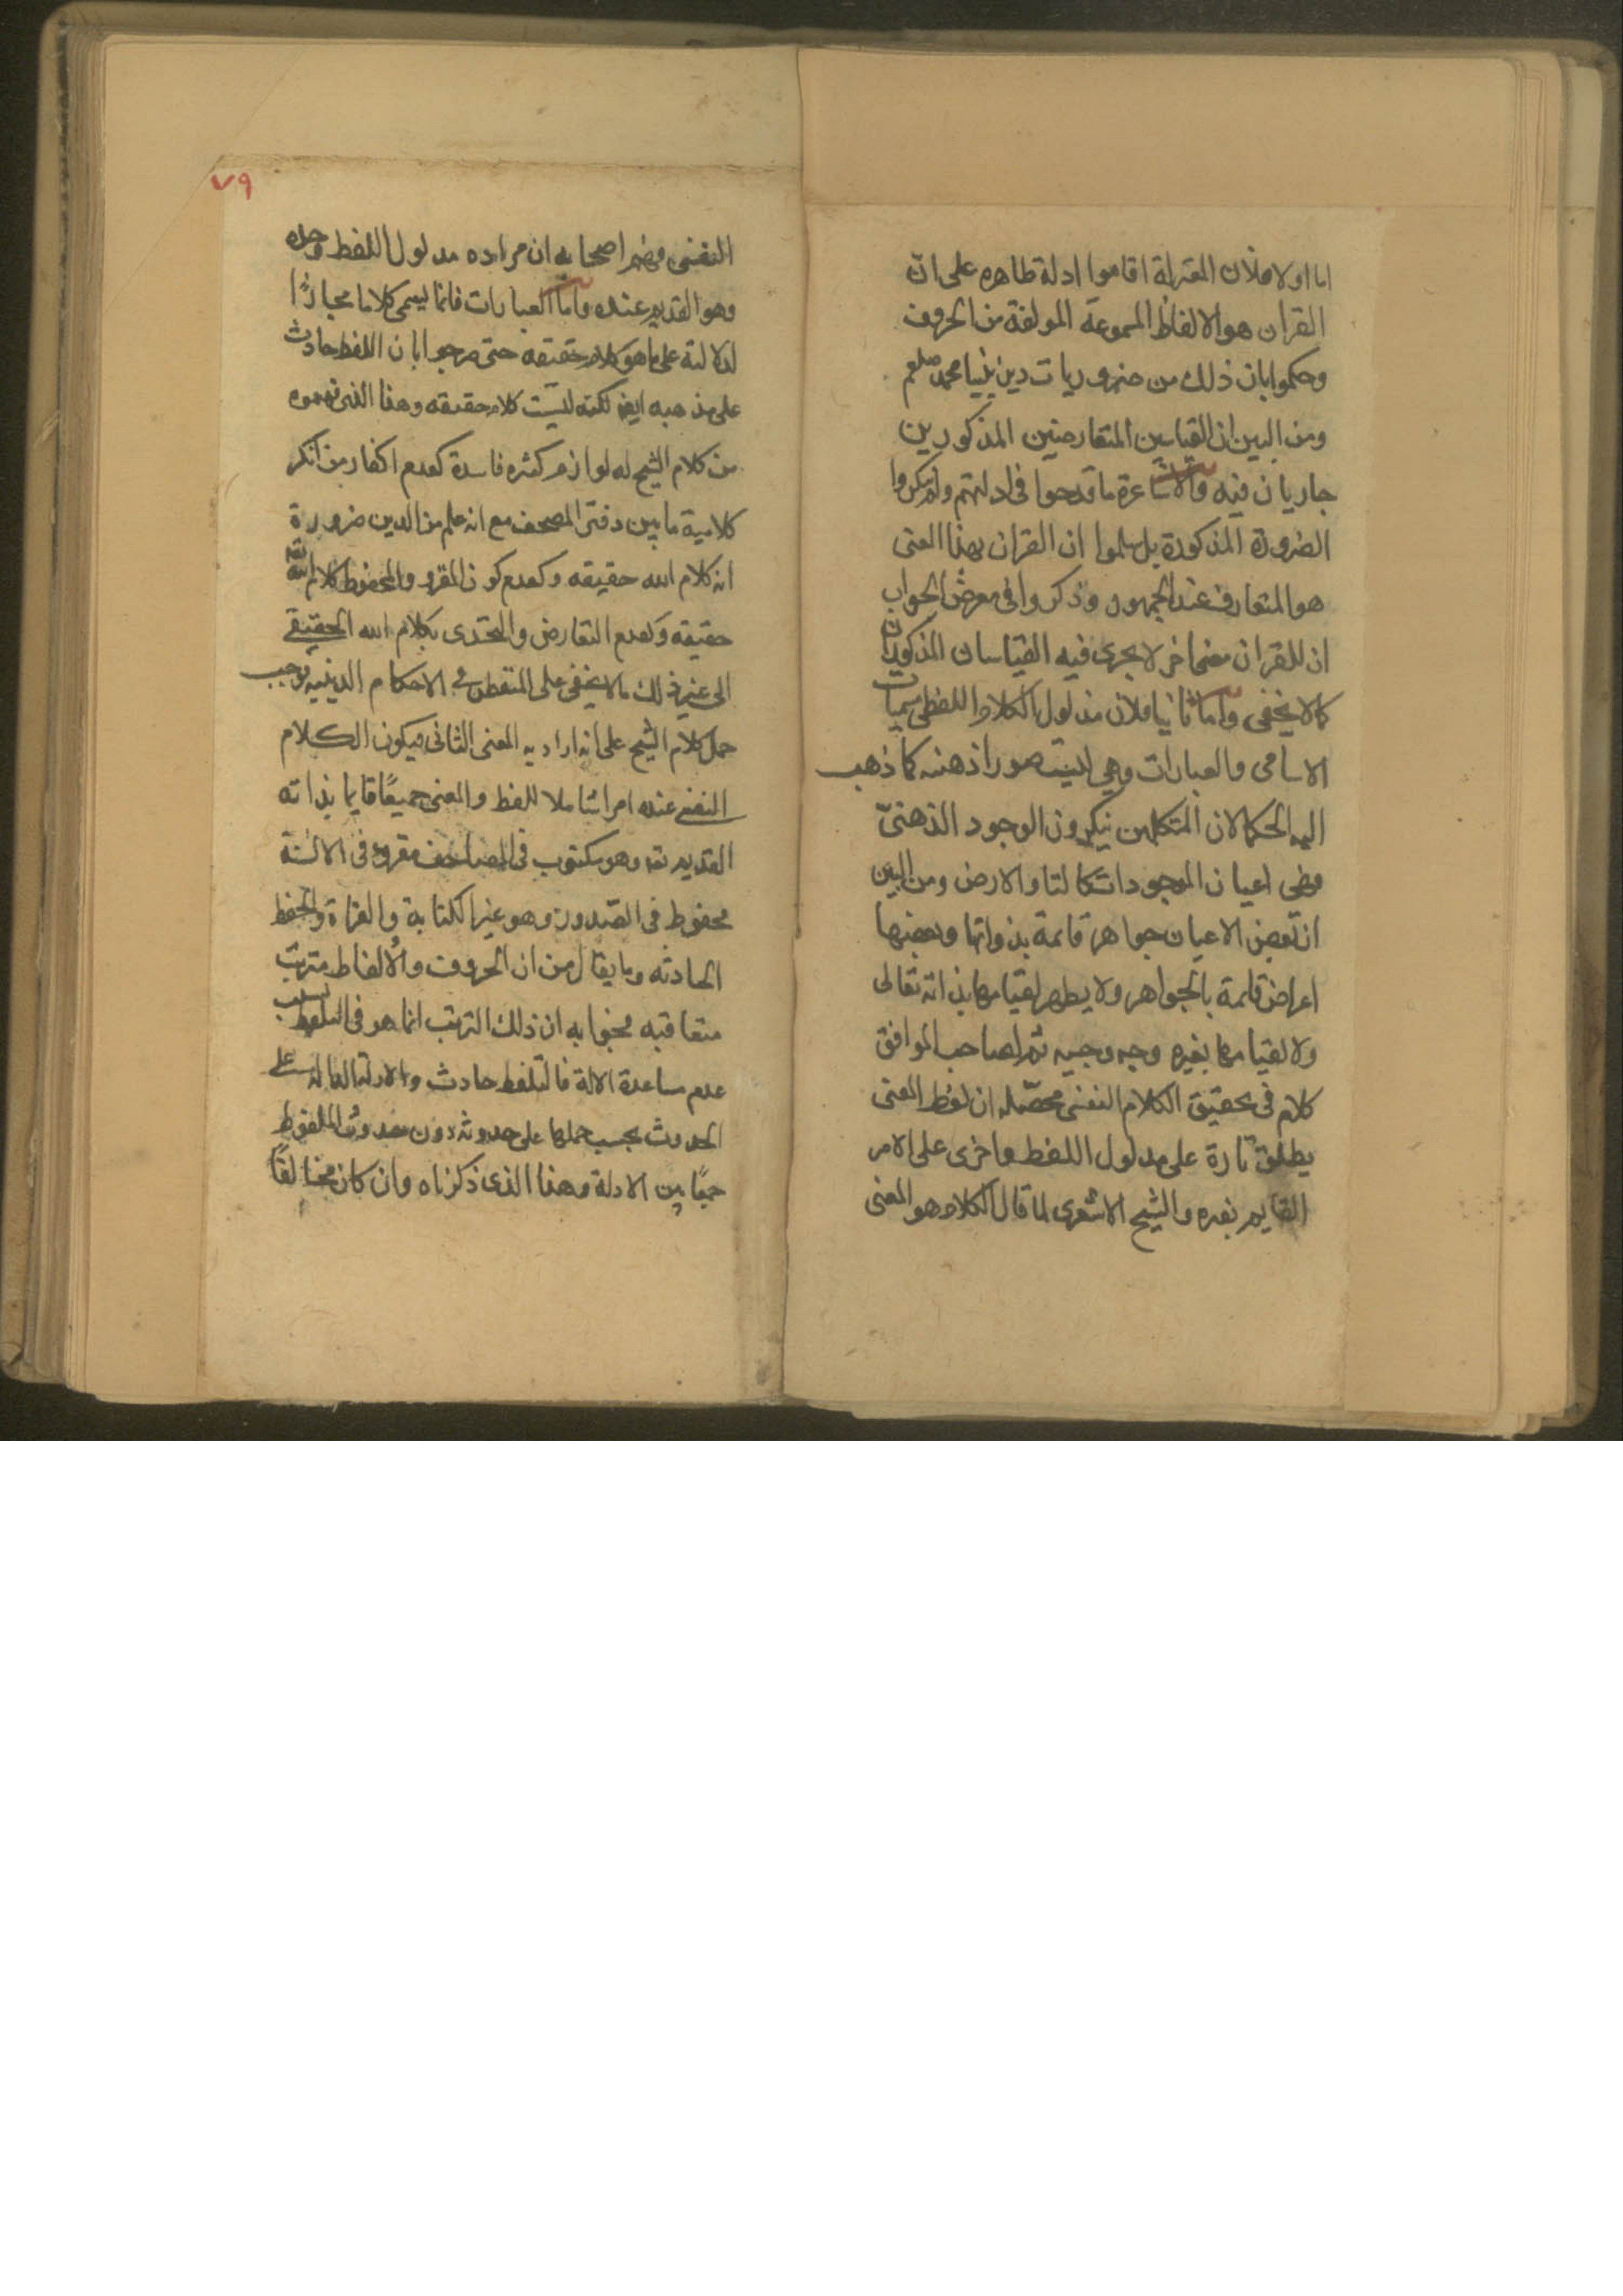 اما اولا فلان المعتزلة اقاموا ادلة ظاهره على ان
القران هو الالفاظ المسموعة المولفة من الحروف
وحكموا بان ذلك من ضروريات دين نبينا محمد صلعم
ومن البين ان القياسين المتعارضين المذكورين
جاريان فيه والاشاعرة ما قدحوا فى ادلتهم ولم ينكروا
الضرورة المذكورة بل سلموا ان القران بهذا المعنى
هو المتعارف عند الجمهور وذكروا فى معرض الجواب
ان للقران معنى اخر لا يجرى فيه القياسان المذكوران
كما لا يخفى واما ثانيا فلان مدلول الكلام اللفظى مسميات
الاسامى والعبارات وهي ليست صورا ذهنيه كما ذهب
اليه الحكما لان المتكلمين ينكرون الوجود الذهنىّ
فهى اعيان الموجودات كالسما والارض ومن البين
ان بعض الاعيان جواهر قائمة بذواتها وبعضها
اعراض قائمة بالجواهر ولا يظهر لقيامها بذاته تعالى
ولا لقيامها بغيره وجه وجيه ثم لصاحب المواقف
كلام فى تحقيق الكلام النفسى محصّله ان لفظ المعنى
يطلق تارة على مدلول اللفظ واخرى على الامر
القايم بغيره والشيخ الاشعرى لما قال الكلام هو المعنى
٧٩
النفسى فهم اصحابه ان مراده مدلول اللفظ وحده
وهو القديم عنده واما العبارات فانما يسمى كلاما مجازًا
لدلالته على ما هو كلام حقيقه حتى صرحوا بان اللفظ حادث
على مذهبه ايضا لكنه ليست كلامه حقيقه وهذا الذى فهموه
من كلام الشيخ له لوازم كثيره فاسدة كعدم اكفار من انكر
كلامية ما بين دفتى المصحف مع انه علم من الدين ضرورة
انه كلام الله حقيقه وكعدم كون المقرو والمحفوظ كلام الله
حقيقه وكعدم التعارض والتحدى بكلام الله الحقيقى
الى غير ذلك مالا يخفى على المتفطن فى الاحكام الدينيه فوجب
حمل كلام الشيخ على انه اراد به المعنى الثانى فيكون الكلام
النفسى عنده امرا شاملا للفظ والمعنى جميعًا قايما بذاته
القديم تعه وهو مكتوب فى المصاحف مقروء فى الالسنة
محفوظ فى الصّدور وهو غير الكتابة والقراة والحفظ
الحادثه وما يقال من ان الحروف والالفاظ مترتب
متعاقبه فجوابه ان ذلك الترتب انما هو فى التلفظ بسبب
عدم مساعدة الالة فالتلفظ حادث والادلة الدالة على
الحدوث يجب حملها على حدوثه دون حدوث الملفوظ
جمعًا بين الادلة وهذا الذى ذكرناه وان كان مخالفًا